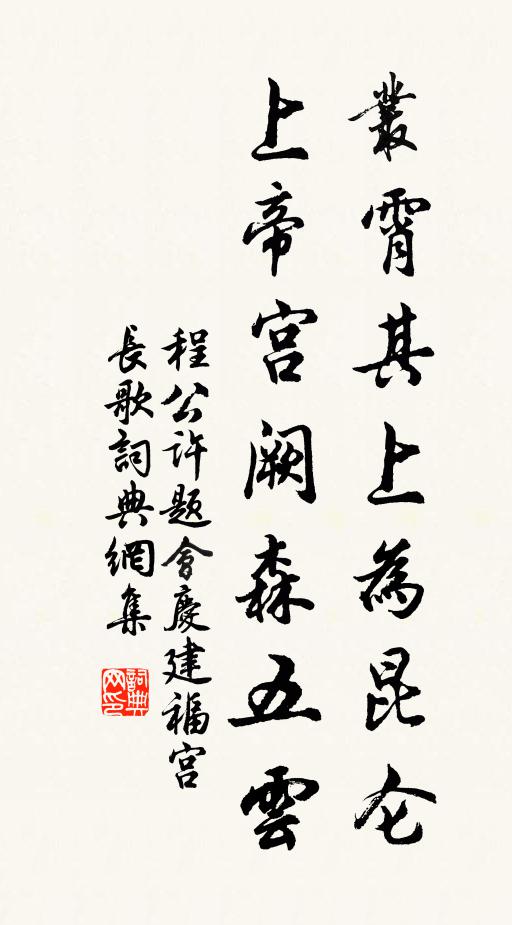 叢霄其上為昆仑
上帝宮闕森五雲
程公许题會慶建福宮
長歌詞典網集
詞典网印